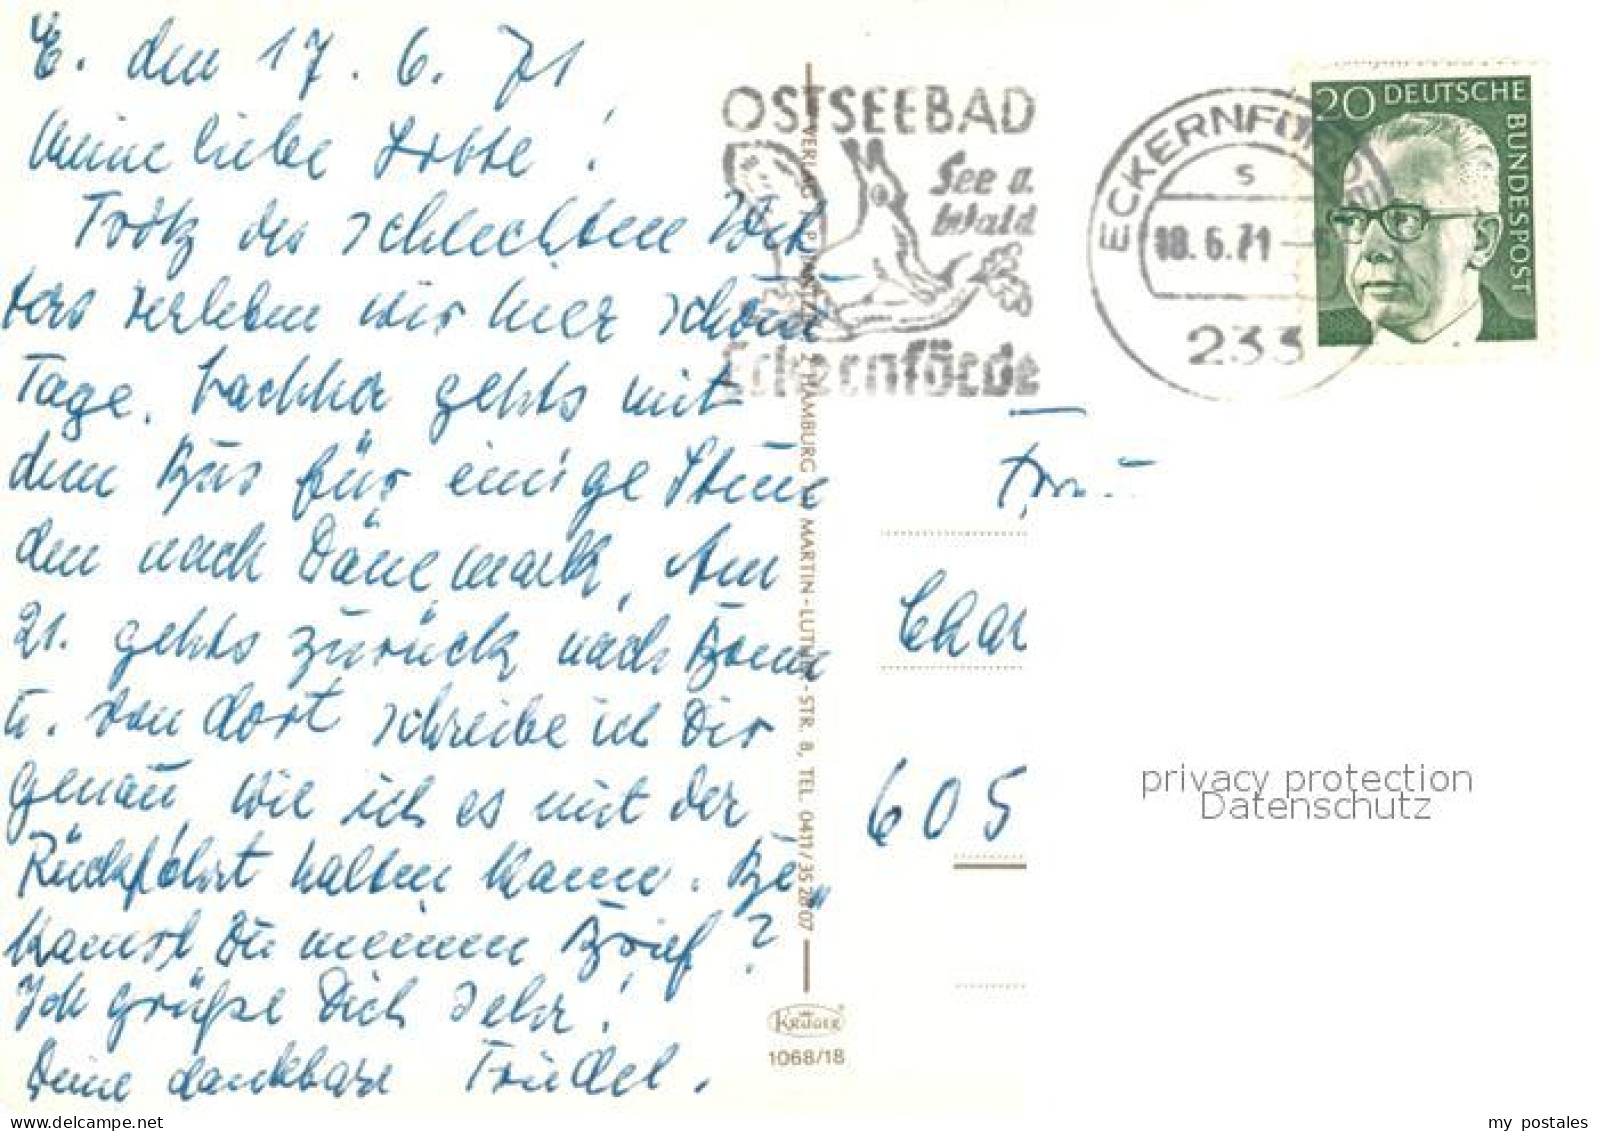 E. den 17. 6. 71
Meine liebe Lotte!
Trotz des schlechten Wet
ters verleben wir hier schöne
Tage. Nachher gehts mit
dem Bus für einige Stun
den nach Dänemark. Am
21. gehts zurück nach Bonn
u. von dort schreibe ich Dir
genau, wie ich es mit der
Rückfahrt halten kann. Be„
kamst Du meinen Brief?
Ich grüße Dich sehr!
Deine dankbare Trudel.
OSTSEEBAD
See u.
Wald
Eckernförde
ECKERNFÖRDE
s
18.6.71
233
20 DEUTSCHE
BUNDESPOST
VERLAG HAMBURG MARTIN-LUTHER-STR. 8, TEL. 0411/35 28 07
Frau
Char
605
KRÜGER
1068/18
privacy protection
Datenschutz
delcampe.net
my_postales